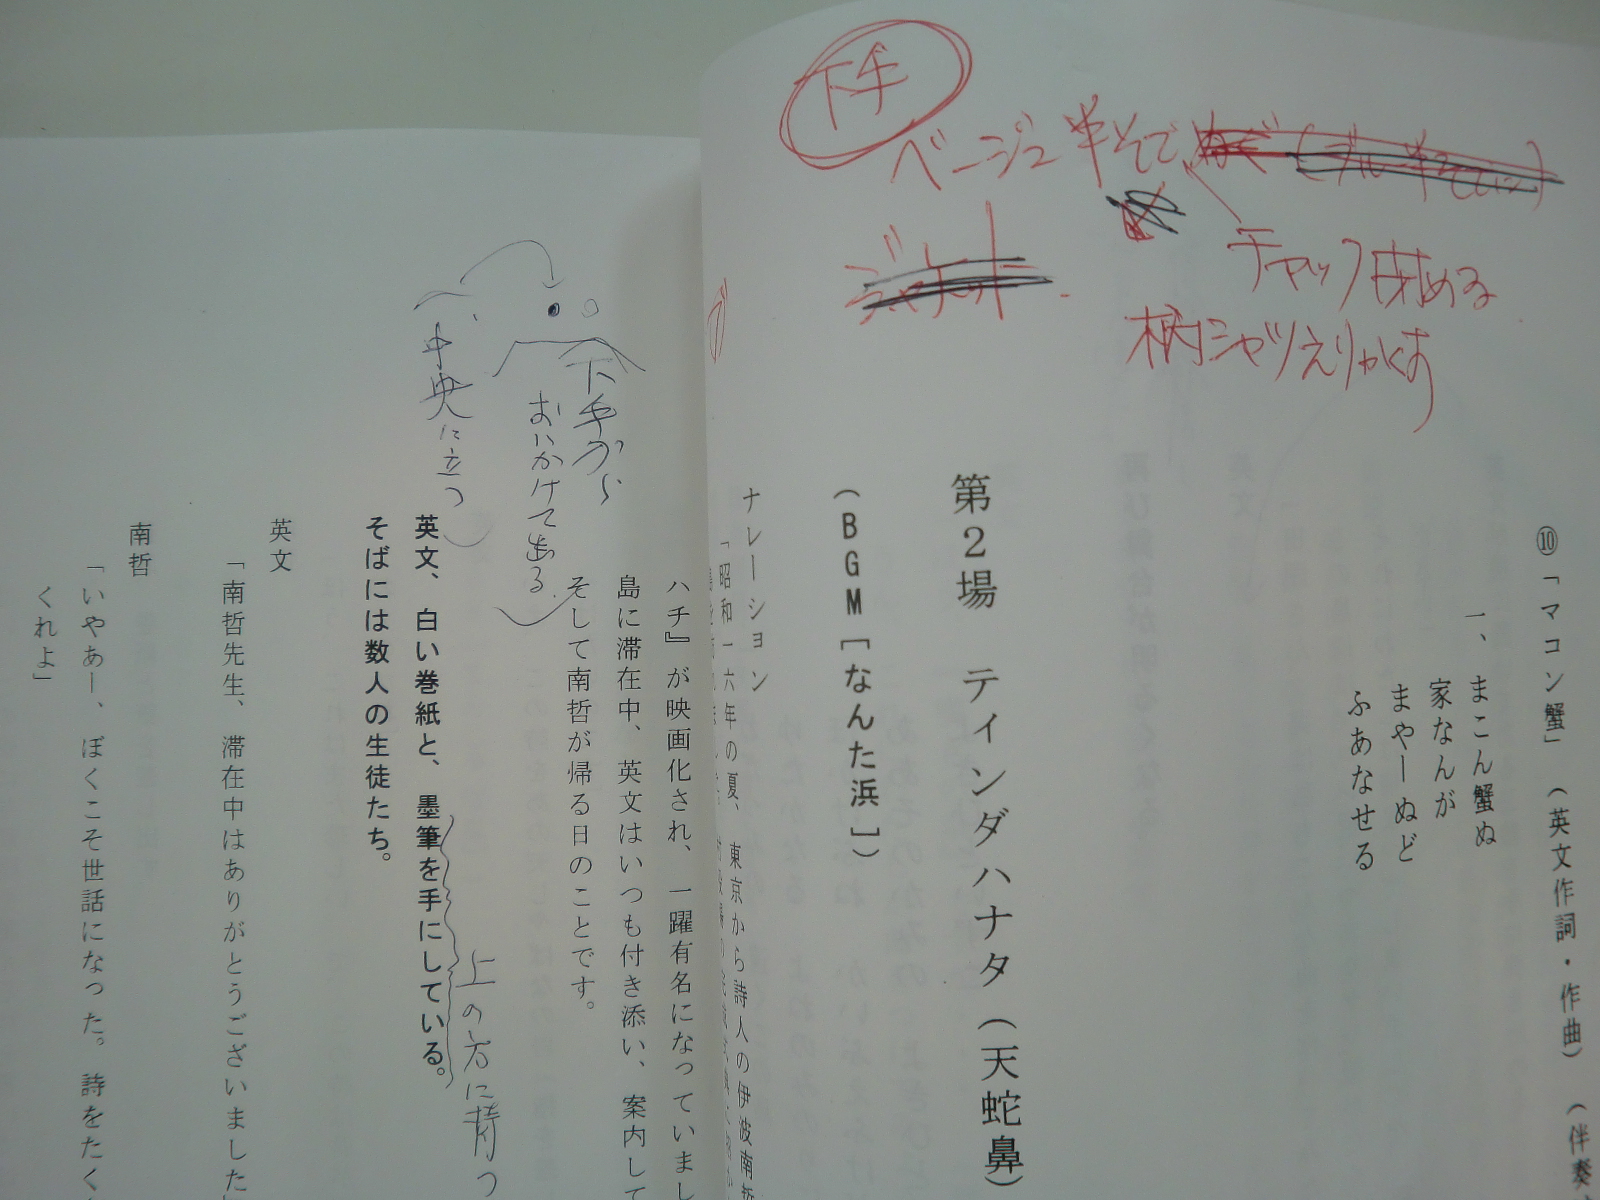 下手
ベージュ半そで
チャック閉める
柄シャツえりかくす
⑩「マコン蟹」(英文作詞・作曲) (伴奏
一、まこん蟹ぬ
家なんが
まやーぬど
ふあなせる
第2場 ティンダハナタ(天蛇鼻)
(BGM[なんた浜])
ナレーション
「昭和一六年の夏、東京から詩人の伊波南哲
ハチ』が映画化され、一躍有名になっていまし
島に滞在中、英文はいつも付き添い、案内して
そして南哲が帰る日のことです。
下手から
おいかけて出る
中央に立つ
英文、白い巻紙と、墨筆を手にしている。
上の方に持つ
そばには数人の生徒たち。
英文
「南哲先生、滞在中はありがとうございました」
南哲
「いやあー、ぼくこそ世話になった。詩をたく
くれよ」